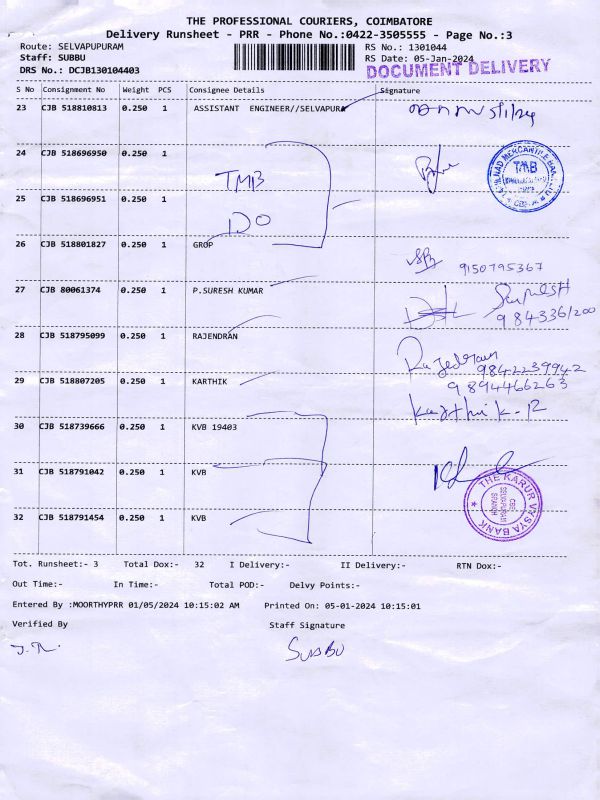 THE PROFESSIONAL COURIERS, COIMBATORE
Delivery Runsheet - PRR - Phone No.:0422-3505555 - Page No.:3
Route: SELVAPUPURAM RS No.: 1301044
Staff: SUBBU RS Date: 05-Jan-2024
DRS No.: DCJB130104403 DOCUMENT DELIVERY
S No Consignment No Weight PCS Consignee Details Signature
23 CJB 518810813 0.250 1 ASSISTANT ENGINEER//SELVAPURA 5/1/24
24 CJB 518696950 0.250 1
TMB
TMB
25 CJB 518696951 0.250 1
DO
26 CJB 518801827 0.250 1 GROP
9150795367
27 CJB 80061374 0.250 1 P.SURESH KUMAR
984336/200
28 CJB 518795099 0.250 1 RAJENDRAN
Rajendran 9842239942
29 CJB 518807205 0.250 1 KARTHIK 9894466263
Karthik-R
30 CJB 518739666 0.250 1 KVB 19403
31 CJB 518791042 0.250 1 KVB
THE KARUR VYSYA BANK
32 CJB 518791454 0.250 1 KVB
Tot. Runsheet:- 3 Total Dox:- 32 I Delivery:- II Delivery:- RTN Dox:-
Out Time:- In Time:- Total POD:- Delvy Points:-
Entered By :MOORTHYPRR 01/05/2024 10:15:02 AM Printed On: 05-01-2024 10:15:01
Verified By Staff Signature
SUBBU